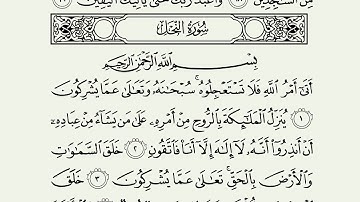 مِّنَ ٱلسَّـٰجِدِينَ ۝٩٨ وَٱعْبُدْ رَبَّكَ حَتَّىٰ يَأْتِيَكَ ٱلْيَقِينُ ۝٩٩
سُورَةُ النَّحْلِ
بِسْمِ ٱللَّهِ ٱلرَّحْمَـٰنِ ٱلرَّحِيمِ
أَتَىٰٓ أَمْرُ ٱللَّهِ فَلَا تَسْتَعْجِلُوهُ سُبْحَـٰنَهُۥ وَتَعَـٰلَىٰ عَمَّا يُشْرِكُونَ
۝١ يُنَزِّلُ ٱلْمَلَـٰٓئِكَةَ بِٱلرُّوحِ مِنْ أَمْرِهِۦ عَلَىٰ مَن يَشَآءُ مِنْ عِبَادِهِۦٓ
أَنْ أَنذِرُوٓا۟ أَنَّهُۥ لَآ إِلَـٰهَ إِلَّآ أَنَا۠ فَٱتَّقُونِ ۝٢ خَلَقَ ٱلسَّمَـٰوَٰتِ
وَٱلْأَرْضَ بِٱلْحَقِّ تَعَـٰلَىٰ عَمَّا يُشْرِكُونَ ۝٣ خَلَقَ